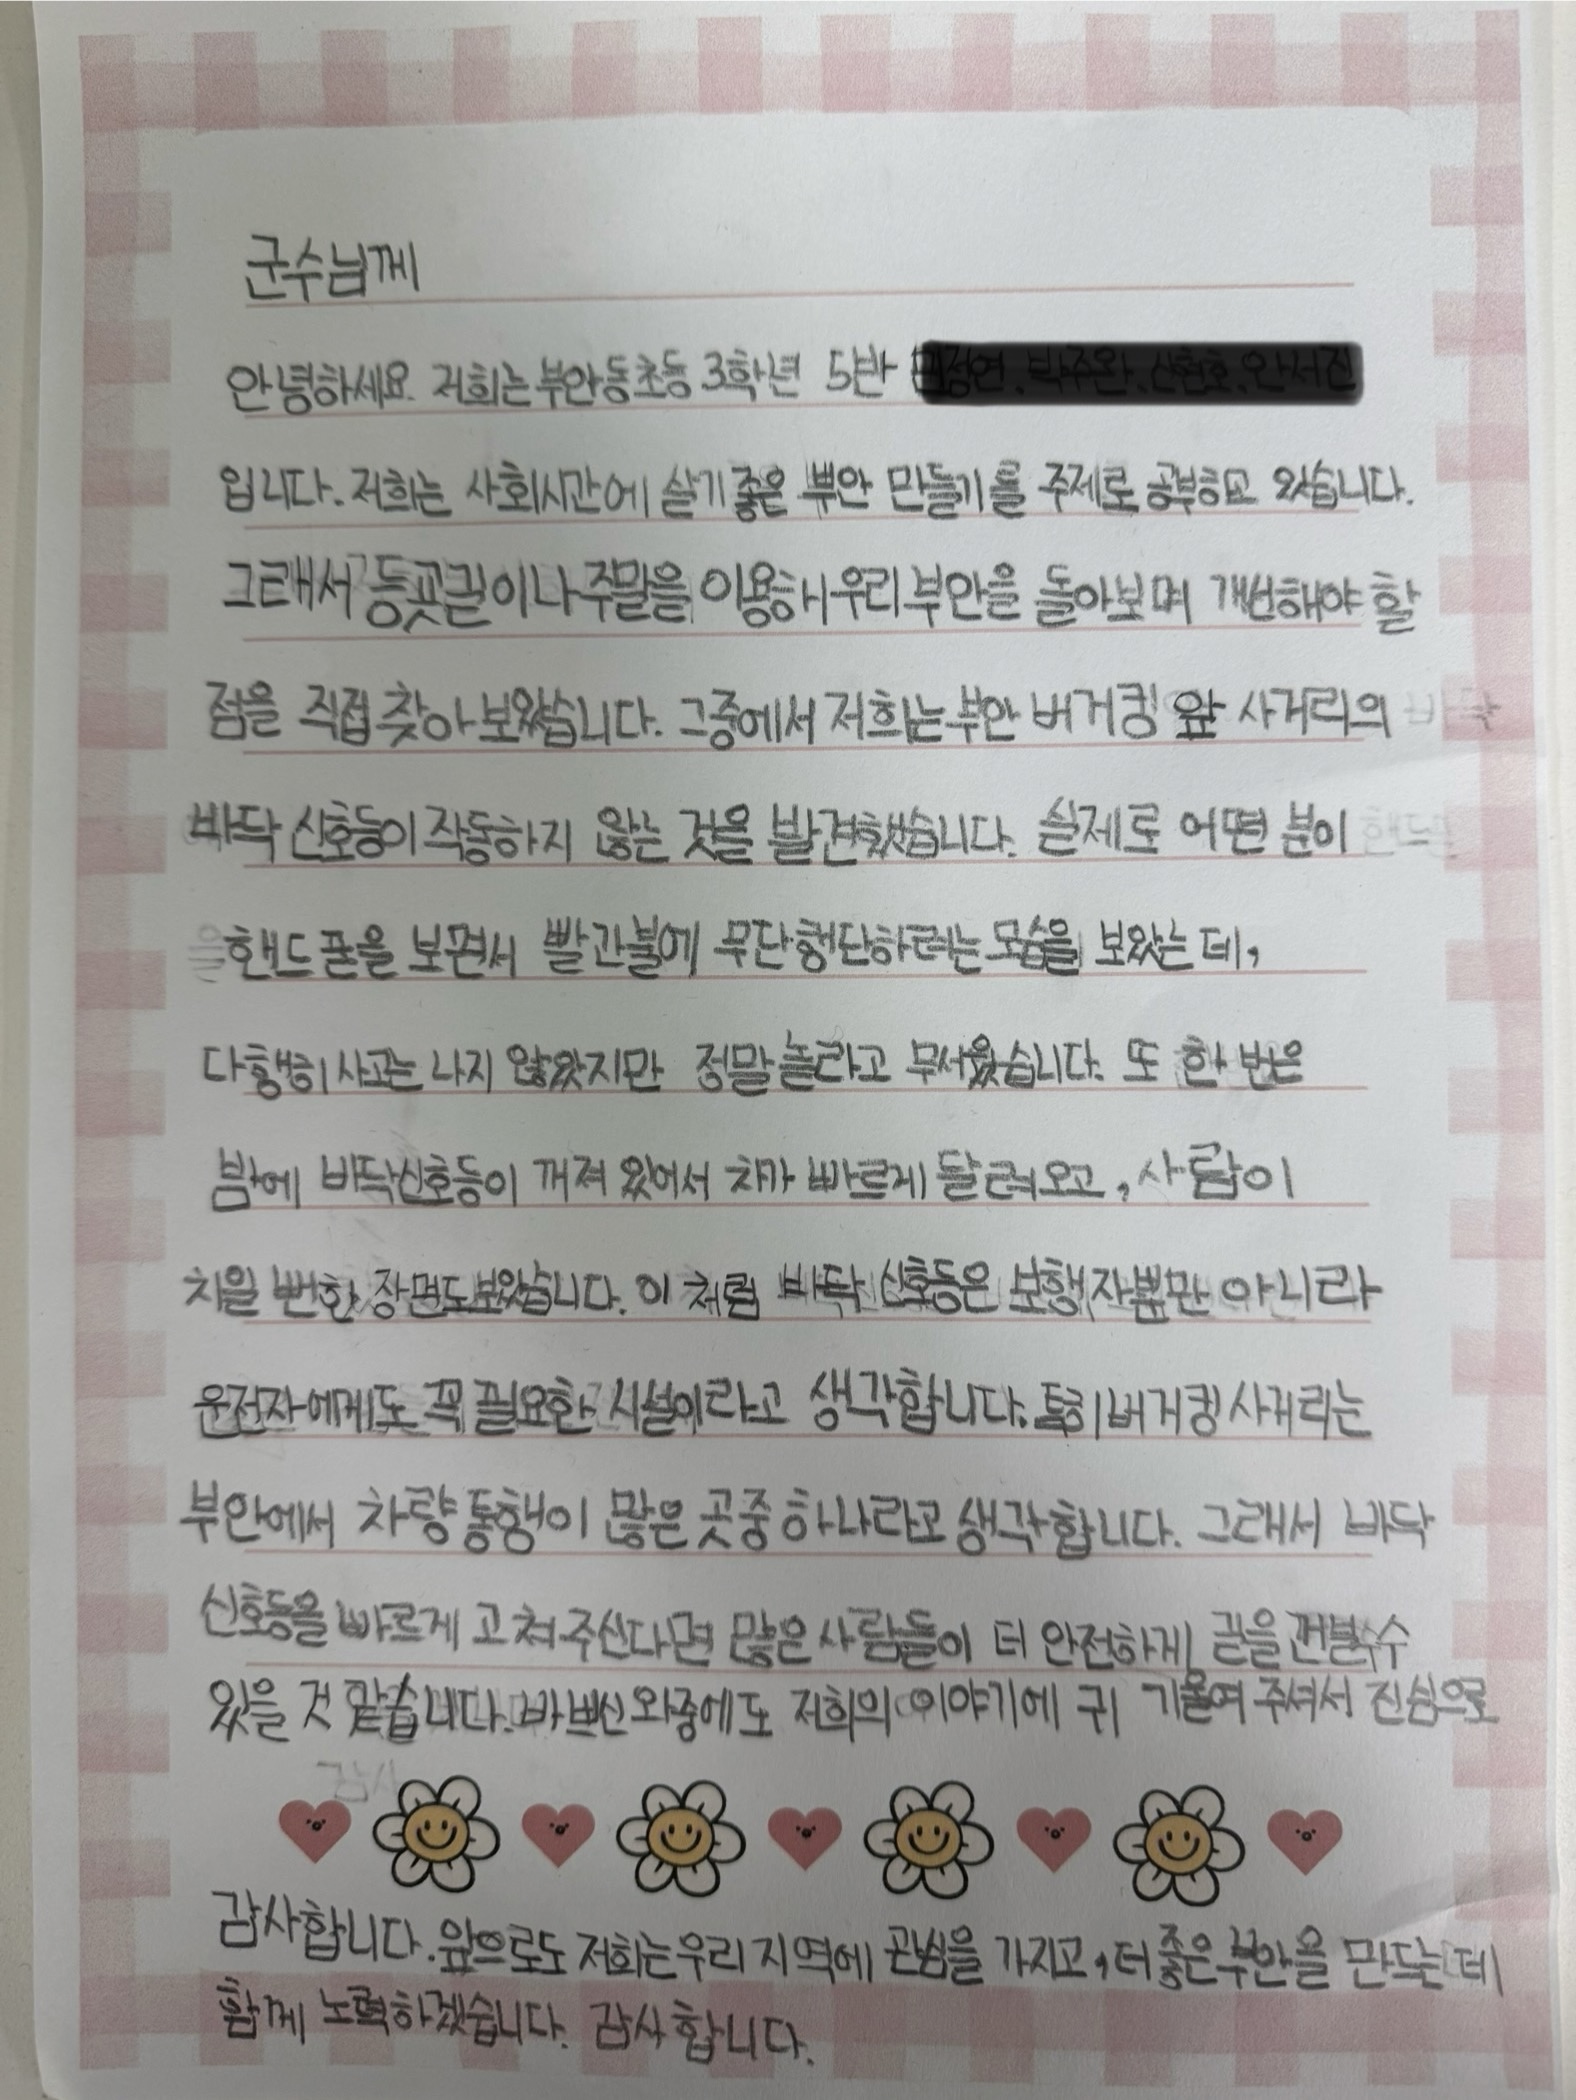 군수님께
안녕하세요. 저희는 부안동초등 3학년 5반
입니다. 저희는 사회시간에 살기 좋은 부안 만들기를 주제로 공부하고 있습니다.
그래서 등굣길이나 주말을 이용해 우리 부안을 돌아보며 개선해야 할
점을 직접 찾아 보았습니다. 그중에서 저희는 부안 버거킹 앞 사거리의
바닥 신호등이 작동하지 않는 것을 발견했습니다. 실제로 어떤 분이
핸드폰을 보면서 빨간불에 무단횡단하려는 모습을 보았는데,
다행히 사고는 나지 않았지만 정말 놀라고 무서웠습니다. 또 한 번은
밤에 바닥신호등이 꺼져 있어서 차가 빠르게 달려오고, 사람이
치일 뻔한 장면도 보았습니다. 이 처럼 바닥 신호등은 보행자뿐만 아니라
운전자에게도 꼭 필요한 시설이라고 생각합니다. 특히 버거킹 사거리는
부안에서 차량 통행이 많은 곳중 하나라고 생각합니다. 그래서 바닥
신호등을 빠르게 고쳐 주신다면 많은 사람들이 더 안전하게 길을 건널 수
있을 것 같습니다. 바쁘신 와중에도 저희의 이야기에 귀 기울여 주셔서 진심으로
감사합니다. 앞으로도 저희는 우리 지역에 관심을 가지고, 더 좋은 부안을 만드는데
함께 노력하겠습니다. 감사합니다.